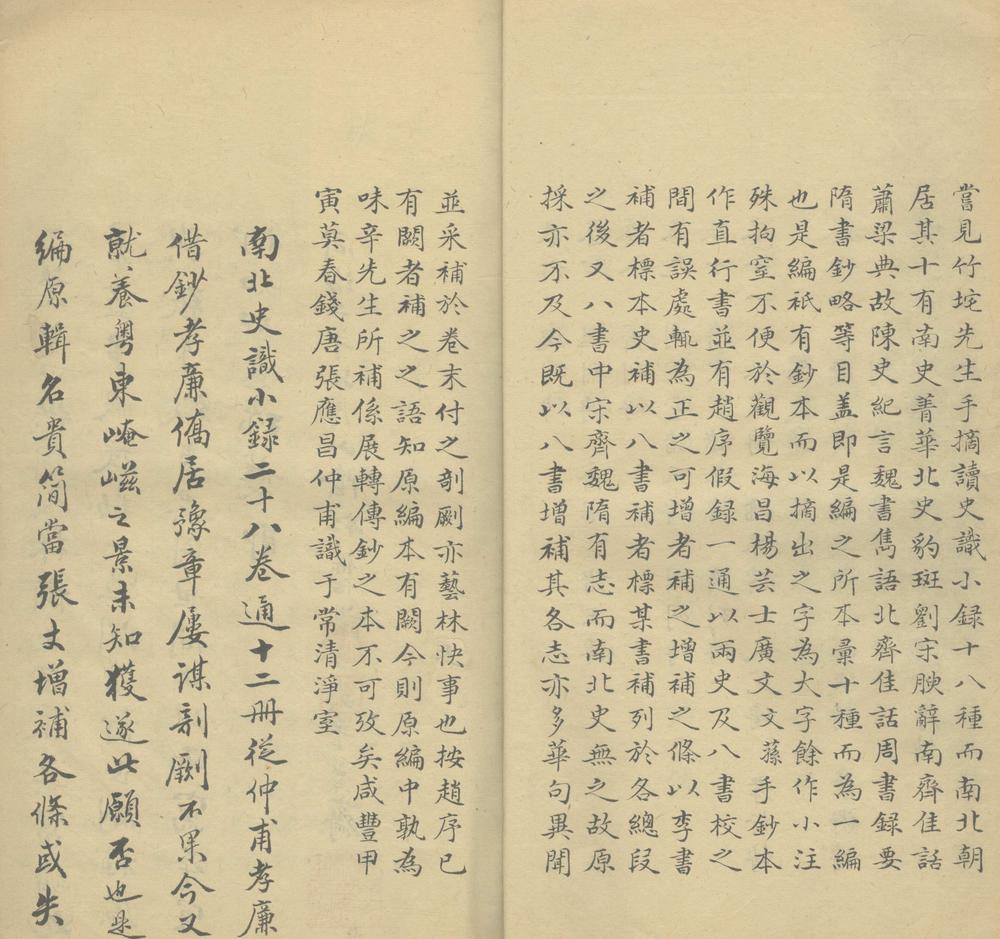 嘗見竹垞先生手摘讀史識小録十八種而南北朝
居其十有南史菁華北史豹斑劉宋腴辭南齊佳話
蕭梁典故陳史紀言魏書雋語北齊佳話周書録要
隋書鈔略等目盖即是編之所本彙十種而為一編
也是編祇有鈔本而以摘出之字為大字餘作小注
殊拘窒不便於觀覽海昌楊芸士廣文文蓀手鈔本
作直行書並有趙序假録一通以兩史及八書校之
間有誤處輒為正之可增者補之增補之條以李書
補者標本史補以八書補者標某書補列於各總段
之後又八書中宋齊魏隋有志而南北史無之故原
採亦不及今既以八書增補其各志亦多華句異聞
並采補於卷末付之剞劂亦藝林快事也按趙序已
有闕者補之之語知原編本有闕今則原編中孰為
味辛先生所補係展轉傳鈔之本不可攷矣咸豐甲
寅莫春錢唐張應昌仲甫識于常清淨室
南北史識小録二十八卷通十二冊從仲甫孝廉
借鈔孝廉僑居豫章屢謀剞劂不果今又
就養粵東崦嵫之景未知獲遂此願否也是
編原輯名貴簡當張丈增補各條或失